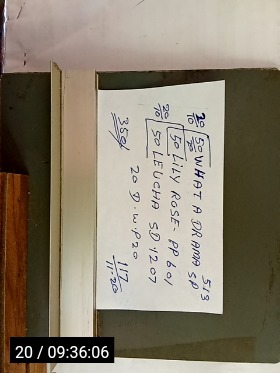 513
20/10 50 WHAT A DRAMA SP
50 LILY ROSE - PP 601
20/10 50 LEUCHA SD. 1207
20 D.W.P 20
350/ 117
11-20
20 / 09:36:06